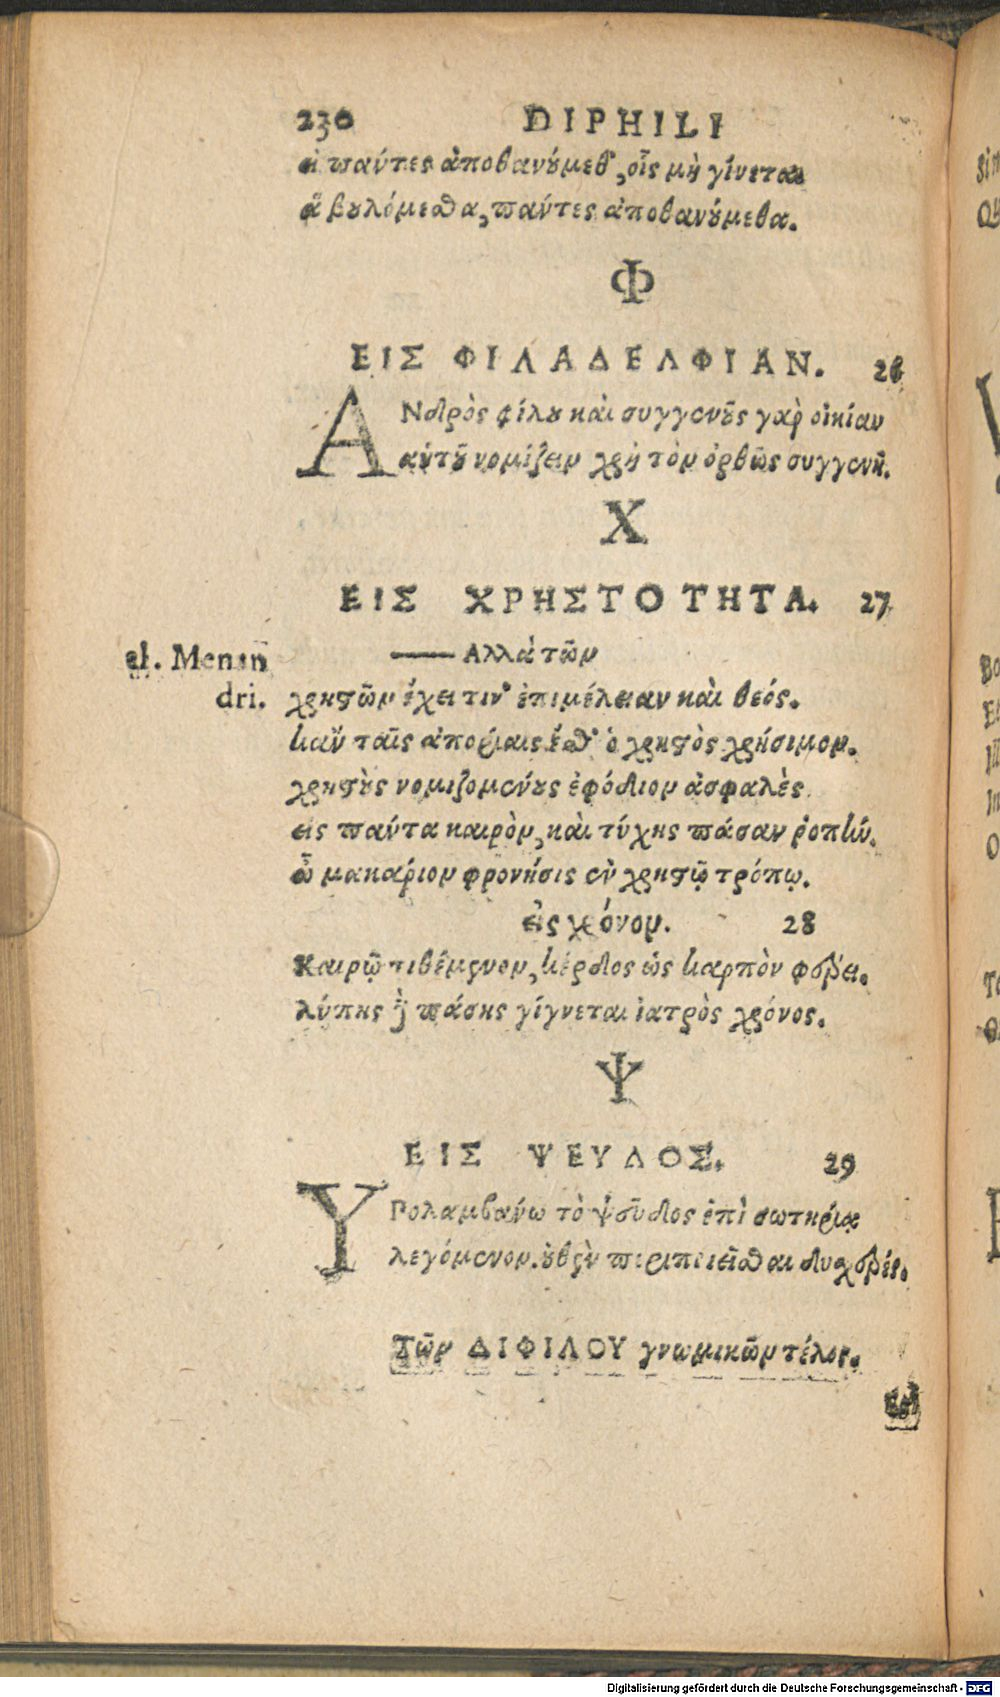 230 DIPHILI
εἰ πάντες ἀποθανούμεθ᾽, οἷς μὴ γίνεται
ἃ βουλόμεσθα, πάντες ἀποθανούμεθα.
Φ
ΕΙΣ ΦΙΛΑΔΕΛΦΙΑΝ. 26
ΑΝδρὸς φίλου καὶ συγγενοῦς γὰρ οἰκίαν
αὑτοῦ νομίζειν χρὴ τὸν ὀρθῶς συγγενῆ.
Χ
ΕΙΣ ΧΡΗΣΤΟΤΗΤΑ. 27
al. Menan
dri.
—— Αλλὰ τῶν
χρηστῶν ἔχει τιν᾽ ἐπιμέλειαν καὶ θεός.
κἂν ταῖς ἀπορίαις ἔσθ᾽ ὁ χρηστὸς χρήσιμον.
χρηστοὺς νομιζομένους ἐφόδιον ἀσφαλὲς
εἰς πάντα καιρὸν, καὶ τύχης πάσαν ῥοπήν.
ὦ μακάριον φρονήσις ἐν χρηστῷ τρόπῳ.
εἰς χρόνον. 28
Καιρῷ τιθέμενον, κέρδος ὡς καρπὸν φέρει.
λύπης δὲ πάσης γίγνεται ἰατρὸς χρόνος.
Ψ
ΕΙΣ ΨΕΥΔΟΣ. 29
ΥΠολαμβάνω τὸ ψεῦδος ἐπὶ σωτηρίᾳ
λεγόμενον. οὐθὲν περιποιεῖσθαι δυσχερές.
Τῶν ΔΙΦΙΛΟΥ γνωμικῶν τέλος.